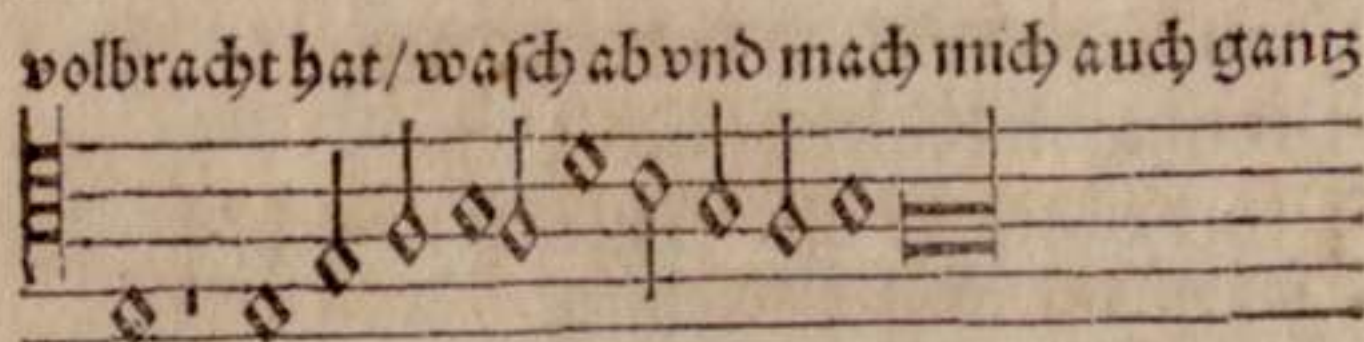 volbracht hat/ waſch ab vnd mach mich auch gantz